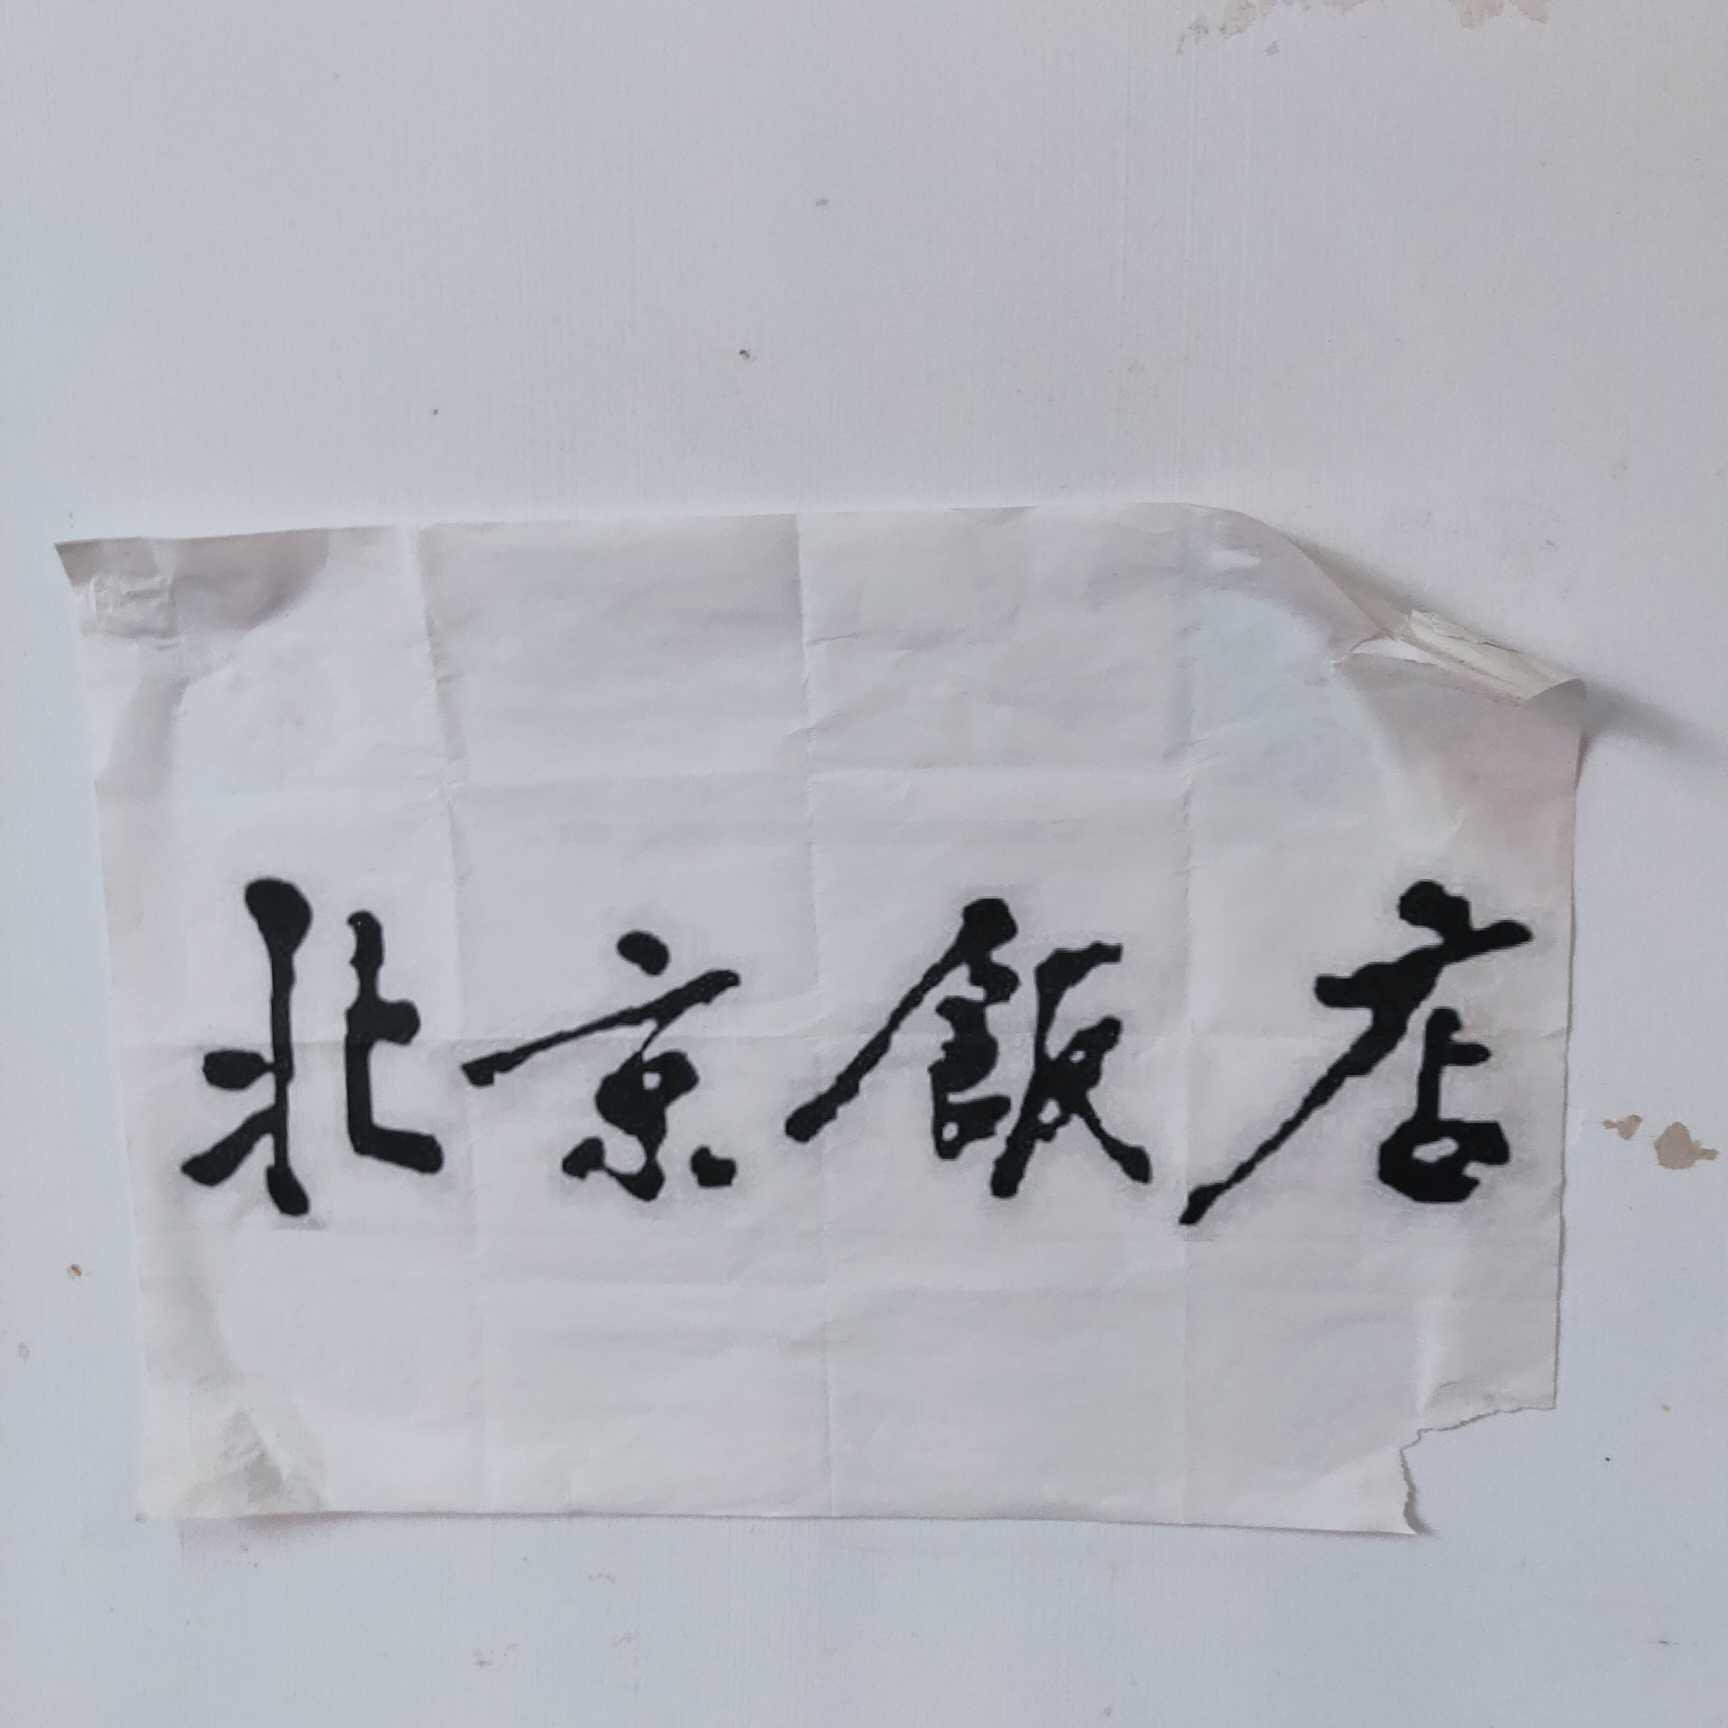 北京飯店